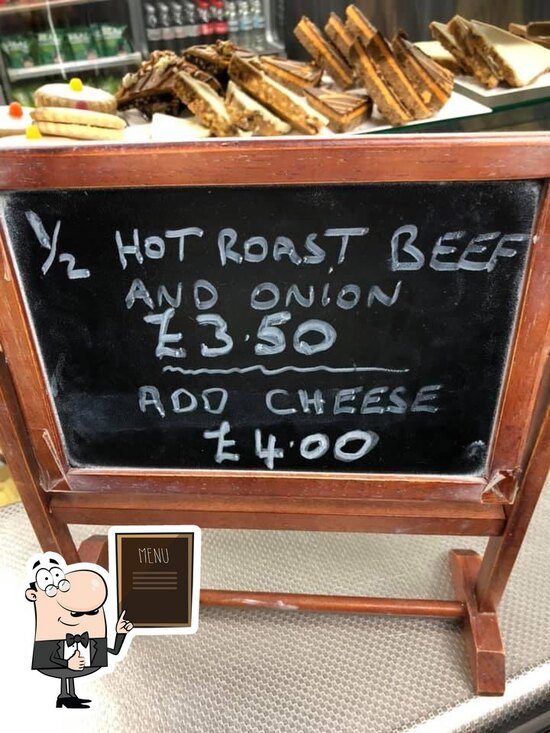 ½ HOT ROAST BEEF
AND ONION
£3.50
ADD CHEESE
£4.00
MENU